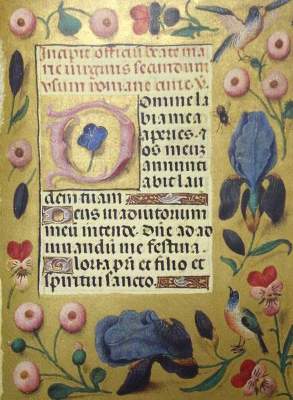 Incipit officiū beate ma
rie uirginis secundum
usum romane curie. V.
Domine la
bia mea
aperies. &
os meuz
annunci
abit lau
dem tuam.
Deus in adiutorium
meū intende. Dn̄e ad ad
iuuandū me festina.
Gloria pr̄i et filio et
spiritui sancto.